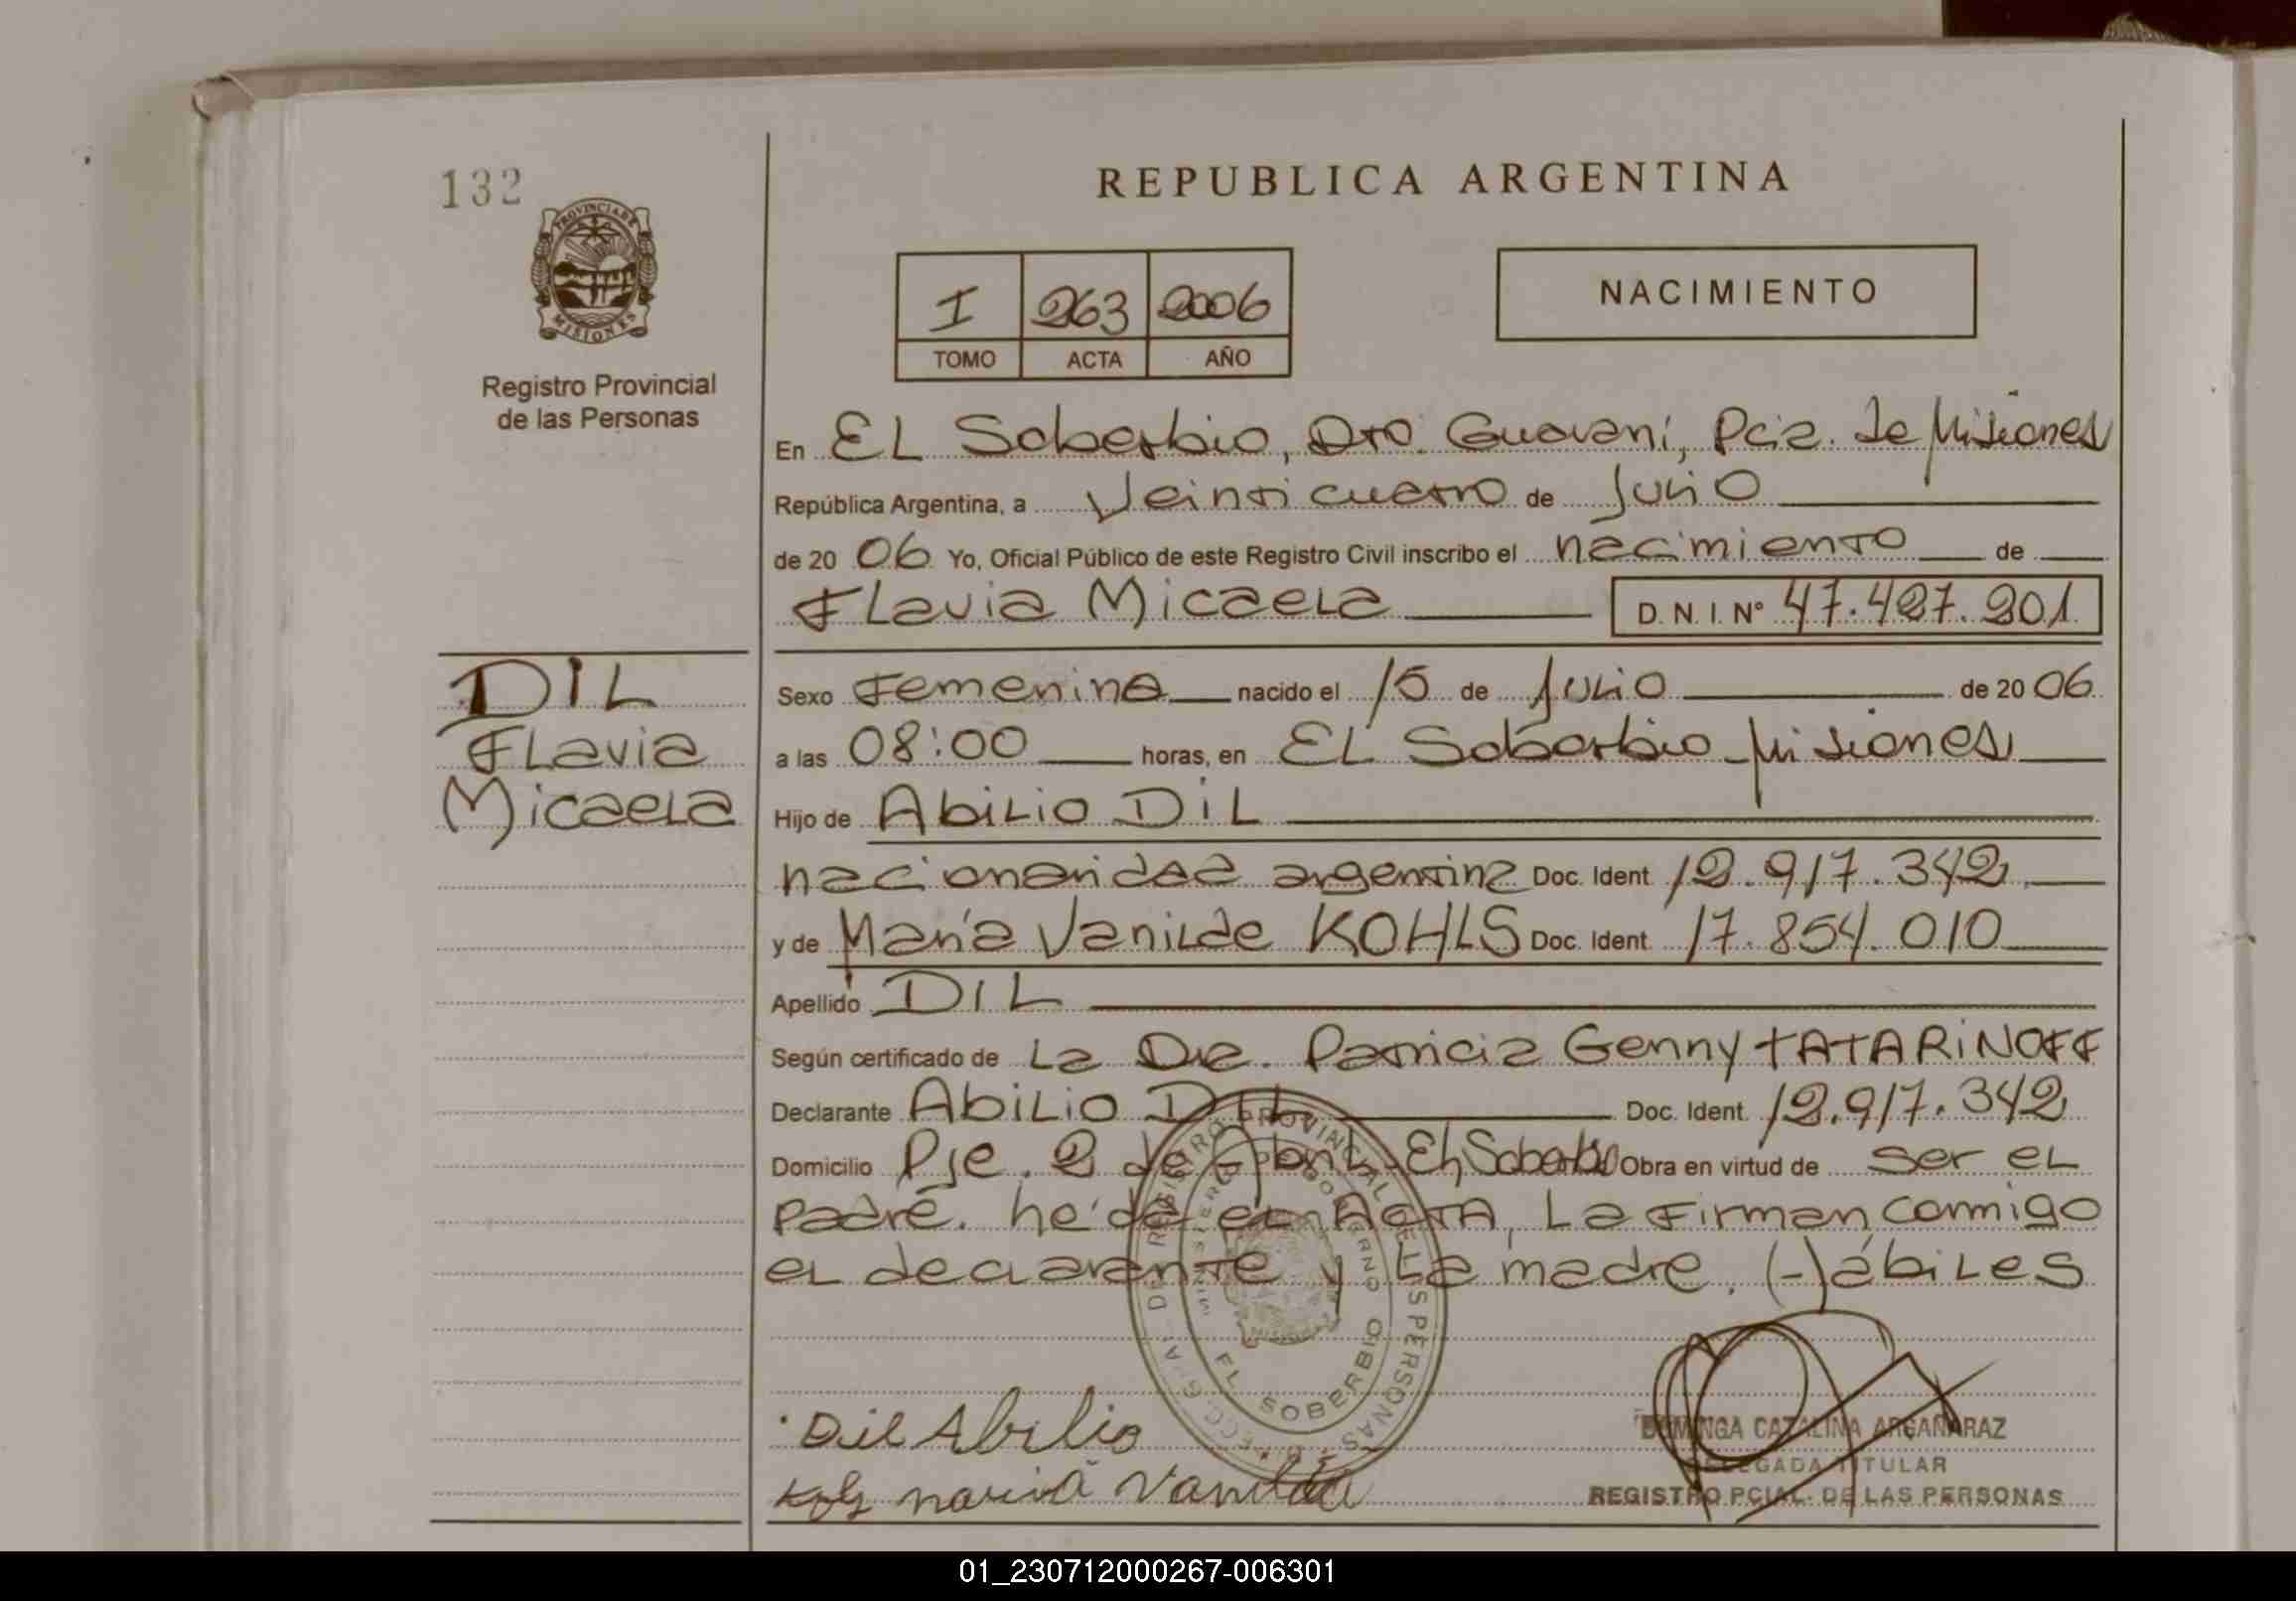 132
PROVINCIA DE
MISIONES
Registro Provincial
de las Personas
REPUBLICA ARGENTINA
I 263 2006
TOMO ACTA AÑO
NACIMIENTO
En EL Soberbio, Dto. Guaraní, Pcia. de Misiones
República Argentina, a Veinticuatro de Julio
de 20 06 Yo, Oficial Público de este Registro Civil inscribo el nacimiento de
Flavia Micaela D.N.I. Nº 47.427.201
DIL
Flavia
Micaela
Sexo Femenino nacido el 15 de Julio de 20 06
a las 08:00 horas, en EL Soberbio Misiones
Hijo de Abilio DiL
nacionalidad argentina Doc. Ident. 12.917.342
y de María Vanilde KOHLS Doc. Ident. 17.854.010
Apellido DIL
Según certificado de La Dra. Patricia Genny TATARINOFF
Declarante Abilio DIL Doc. Ident. 12.917.342
Domicilio Pje. 2 de Abril, EL Soberbio Obra en virtud de ser el
padre. heída el ACTA, La Firman conmigo
el declarante y La madre. (-)ábiles
REGISTRO PROVINCIAL DE LAS PERSONAS
MINISTERIO DE GOBIERNO
EL SOBERBIO
Dil Abilio
maria Vanilda
DOMINGA CATALINA ARGAÑARAZ
DELEGADA TITULAR
REGISTRO PCIAL. DE LAS PERSONAS
01_230712000267-006301